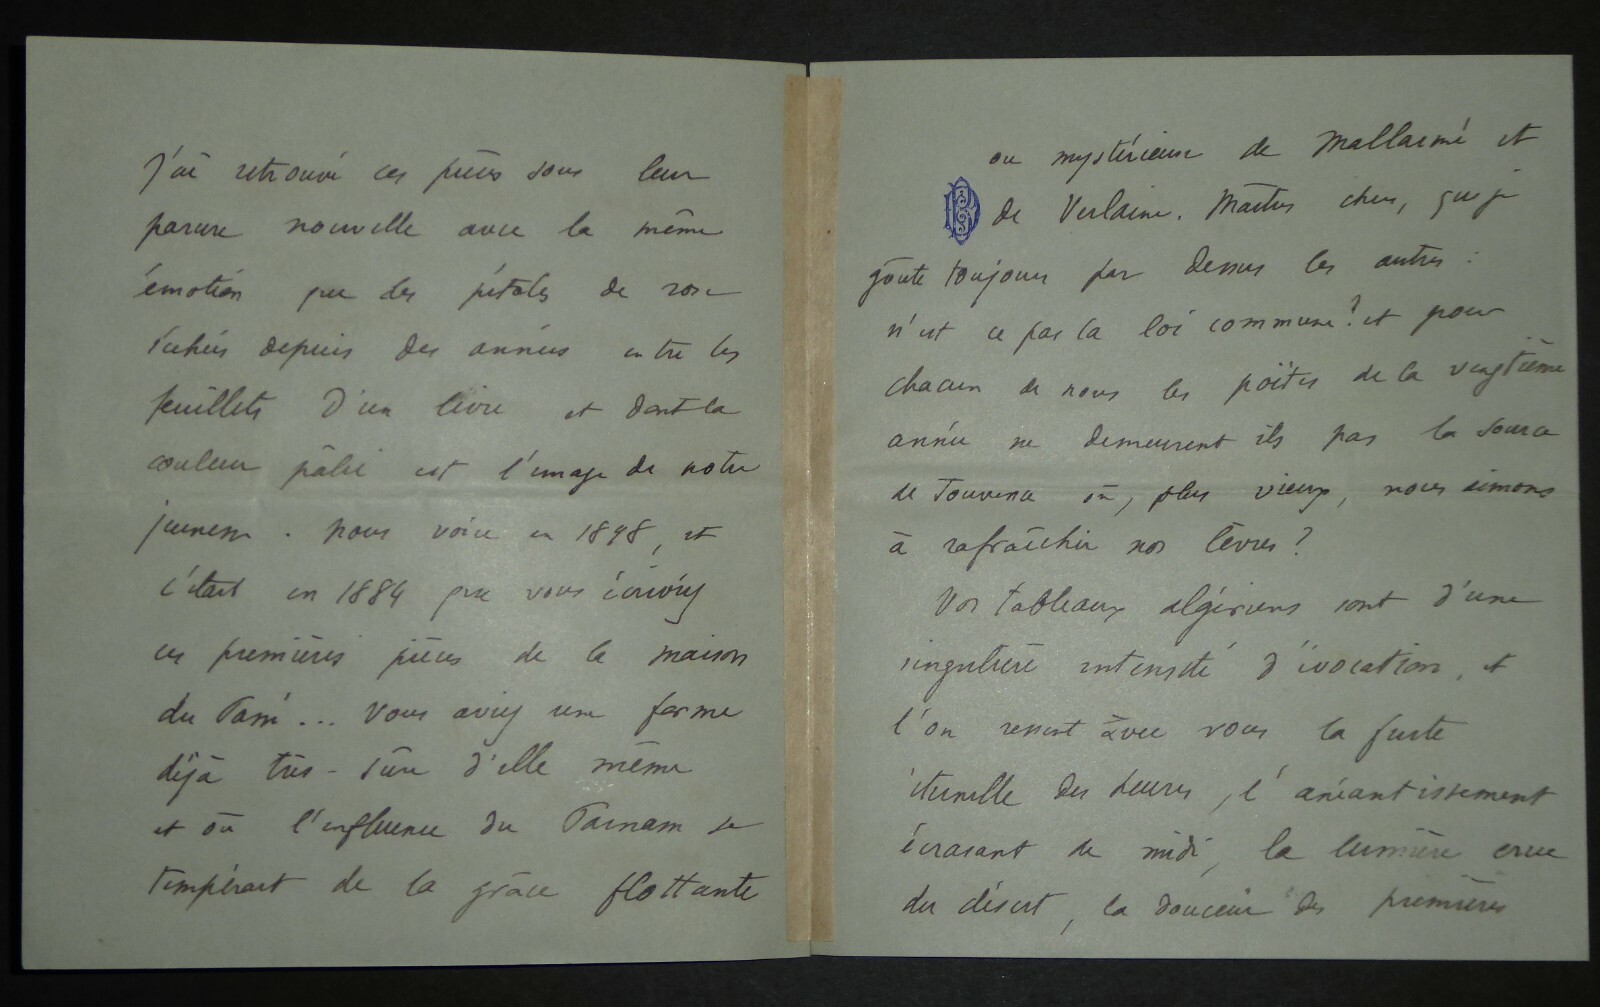 J'ai retrouvé ces pièces sous leur
parure nouvelle avec la même
émotion que des pétales de rose
séchés depuis des années entre les
feuillets d'un livre et dont la
couleur pâlie est l'image de notre
jeunesse. Nous voici en 1898, et
c'était en 1884 que vous écriviez
ces premières pièces de la maison
du Passé... Vous aviez une forme
déjà très-sûre d'elle même
et où l'influence du Parnasse se
tempérait de la grâce flottante
ou mystérieuse de Mallarmé et
de Verlaine. Maîtres chers, que je
goûte toujours par dessus les autres :
n'est ce pas la loi commune? et pour
chacun de nous les poëtes de la vingtième
année ne demeurent ils pas la source
de Jouvence où, plus vieux, nous aimons
à rafraîchir nos lèvres?
Vos tableaux algériens sont d'une
singulière intensité d'évocation, et
l'on ressent avec vous la fuite
éternelle des heures, l'anéantissement
écrasant de midi, la lumière crue
du désert, la douceur des premières